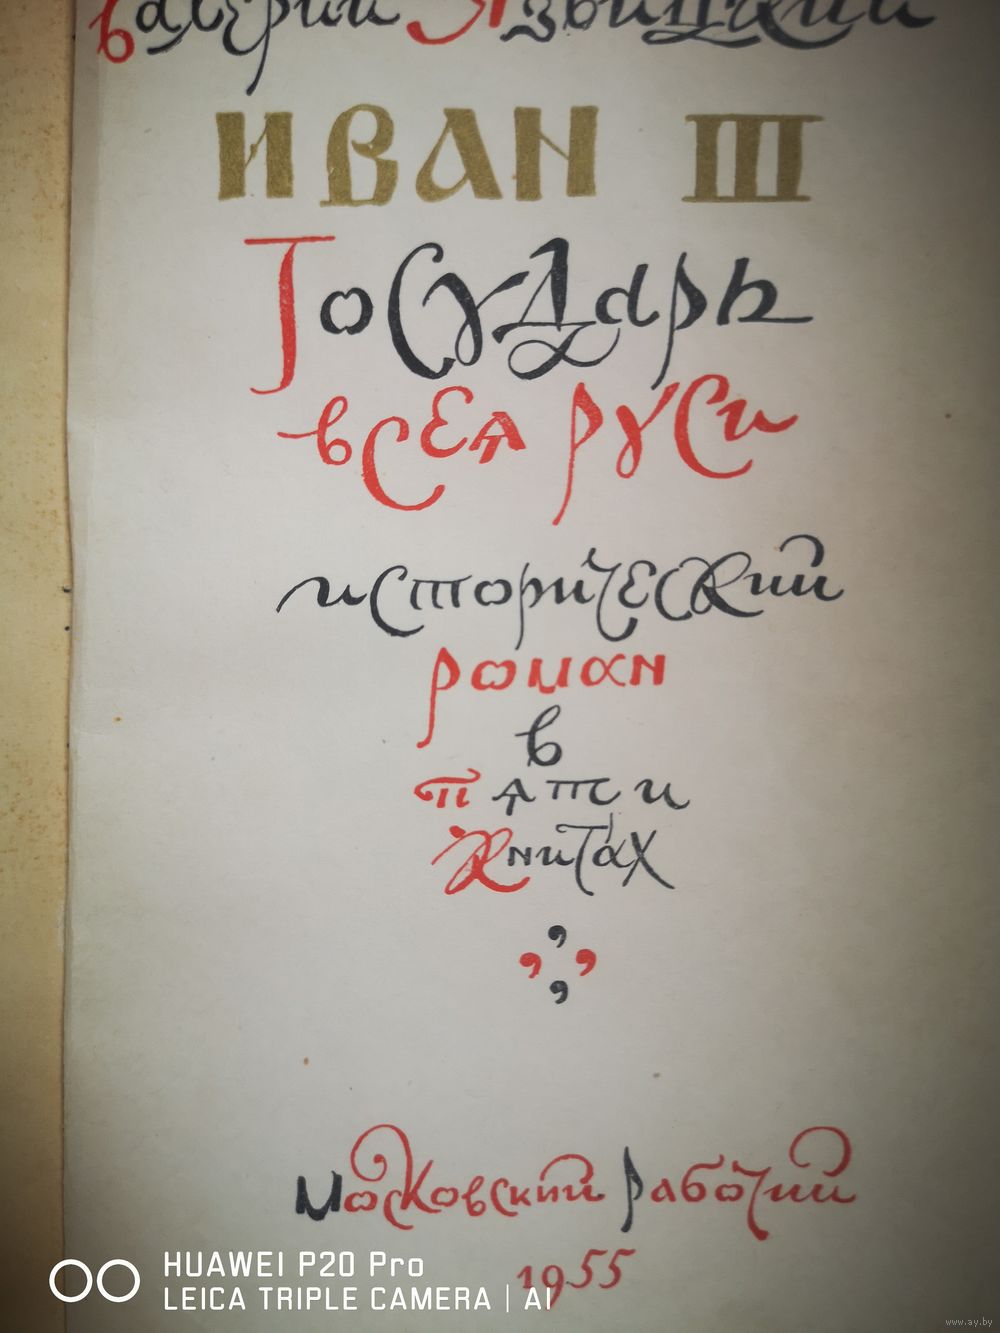 Валерий Язвицкий
ИВАН III
Государь
всея Руси
исторический
роман
в
пяти
книгах
Московский рабочий
1955
HUAWEI P20 Pro
LEICA TRIPLE CAMERA | AI
www.ay.by